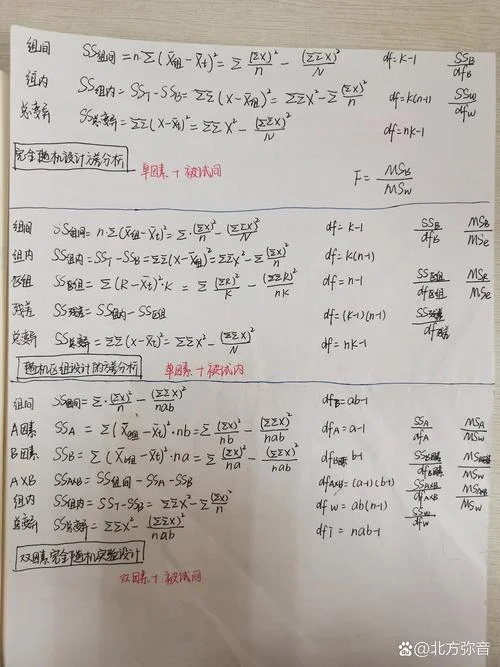 组间 SS组间=n·Σ(X̄组-X̄t)²=Σ(ΣX)²/n-(ΣΣX)²/N df=k-1 SSB/dfB
组内 SS组内=SST-SSB=ΣΣ(X-X̄组)²=ΣΣX²-Σ(ΣX)²/n df=k(n-1) SSW/dfW
总变异 SS总变异=ΣΣ(X-X̄t)²=ΣΣX²-(ΣΣX)²/N df=nk-1
完全随机设计方差分析 单因素+被试间 F=MSB/MSW
组间 SS组间=n·Σ(X̄组-X̄t)²=Σ·(ΣX)²/n-(ΣΣX)²/N df=k-1 SSB/dfB MSB/MSe
组内 SS组内=SST-SSB=ΣΣ(X-X̄组)²=ΣΣX²-Σ(ΣX)²/n df=k(n-1)
区组 SS区组=Σ(R-X̄t)²·k=Σ(ΣR)²/k-(ΣΣR)²/nk df=n-1 SS区组/df区组 MS区组/MSe
残差 SS残差=SS组内-SS区组 df=(k-1)(n-1) SS残差/df残差
总变异 SS总变异=ΣΣ(X-X̄t)²=ΣΣX²-(ΣΣX)²/N df=nk-1
随机区组设计的方差分析 单因素+被试内
组间 SS组间=Σ·(ΣX)²/n-(ΣΣX)²/nab dfB=ab-1
A因素 SSA=Σ(X̄组-X̄t)²·nb=Σ(ΣX)²/nb-(ΣΣX)²/nab dfA=a-1 SSA/dfA MSA/MSW
B因素 SSB=Σ(X̄组-X̄t)²·na=Σ(ΣX)²/na-(ΣΣX)²/nab b-1
AXB SSAXB=SS组间-SSA-SSB dfAXB=(a-1)(b-1) SSAXB/dfAXB MSAXB/MSW
组内 SS组内=SST-SSB=ΣΣX²-Σ(ΣX)²/n dfW=ab(n-1) SSW/dfW
总变异 SS总变异=ΣΣX²-(ΣΣX)²/nab dfT=nab-1
双因素完全随机实验设计 双因素+被试间
@北方弥音